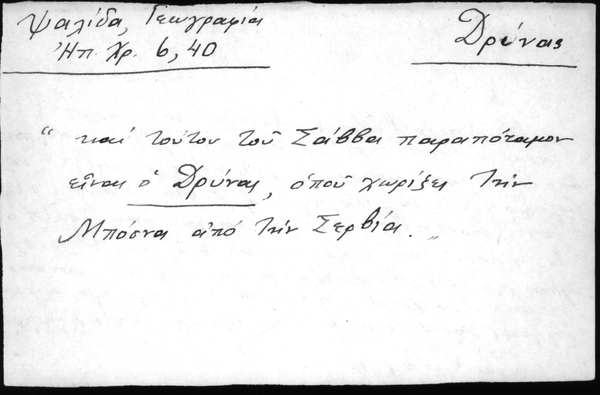 Ψαλίδα, Γεωγραφία
Ἠπ. Χρ. 6, 40
Δρύνας
“ καί τούτου τοῦ Σάββα παραπόταμον
εἶναι ὁ Δρύνας, ὁποῦ χωρίζει τήν
Μπόσνα ἀπό τήν Σερβία. „